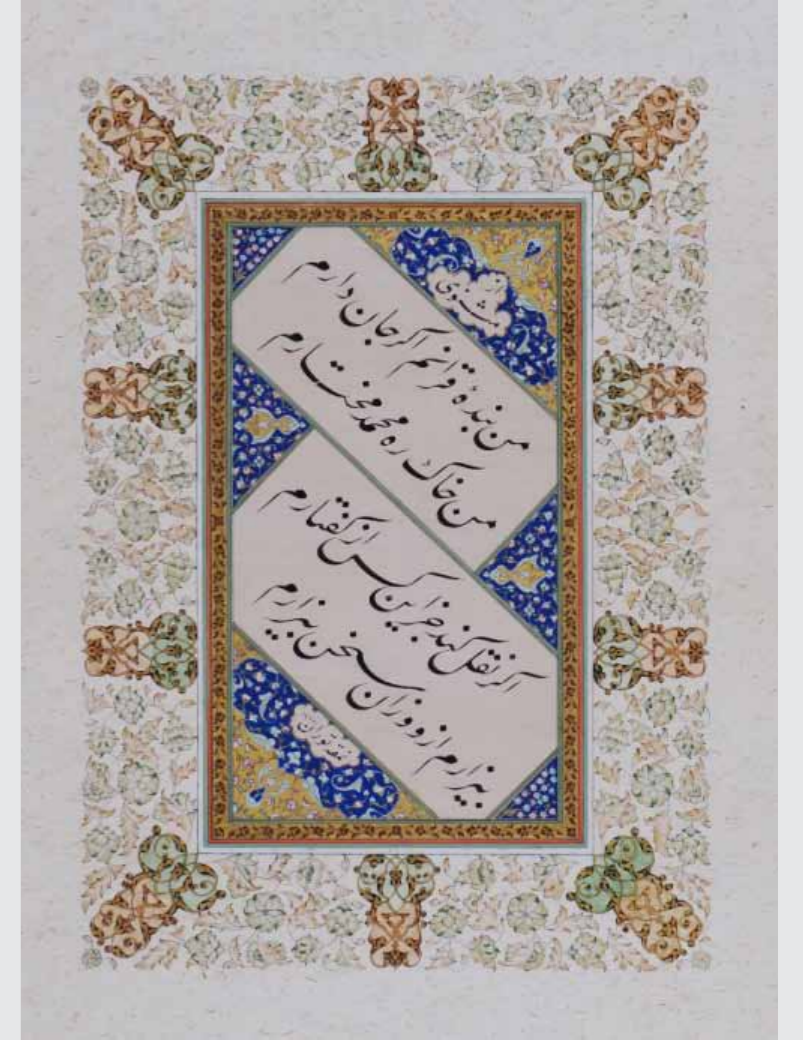 مثنوی
من بندهٔ قرآنم اگر جان دارم
من خاک ره محمد مختارم
اگر نقل کند جز این کس از گفتارم
بیزارم از و وزان سخن بیزارم